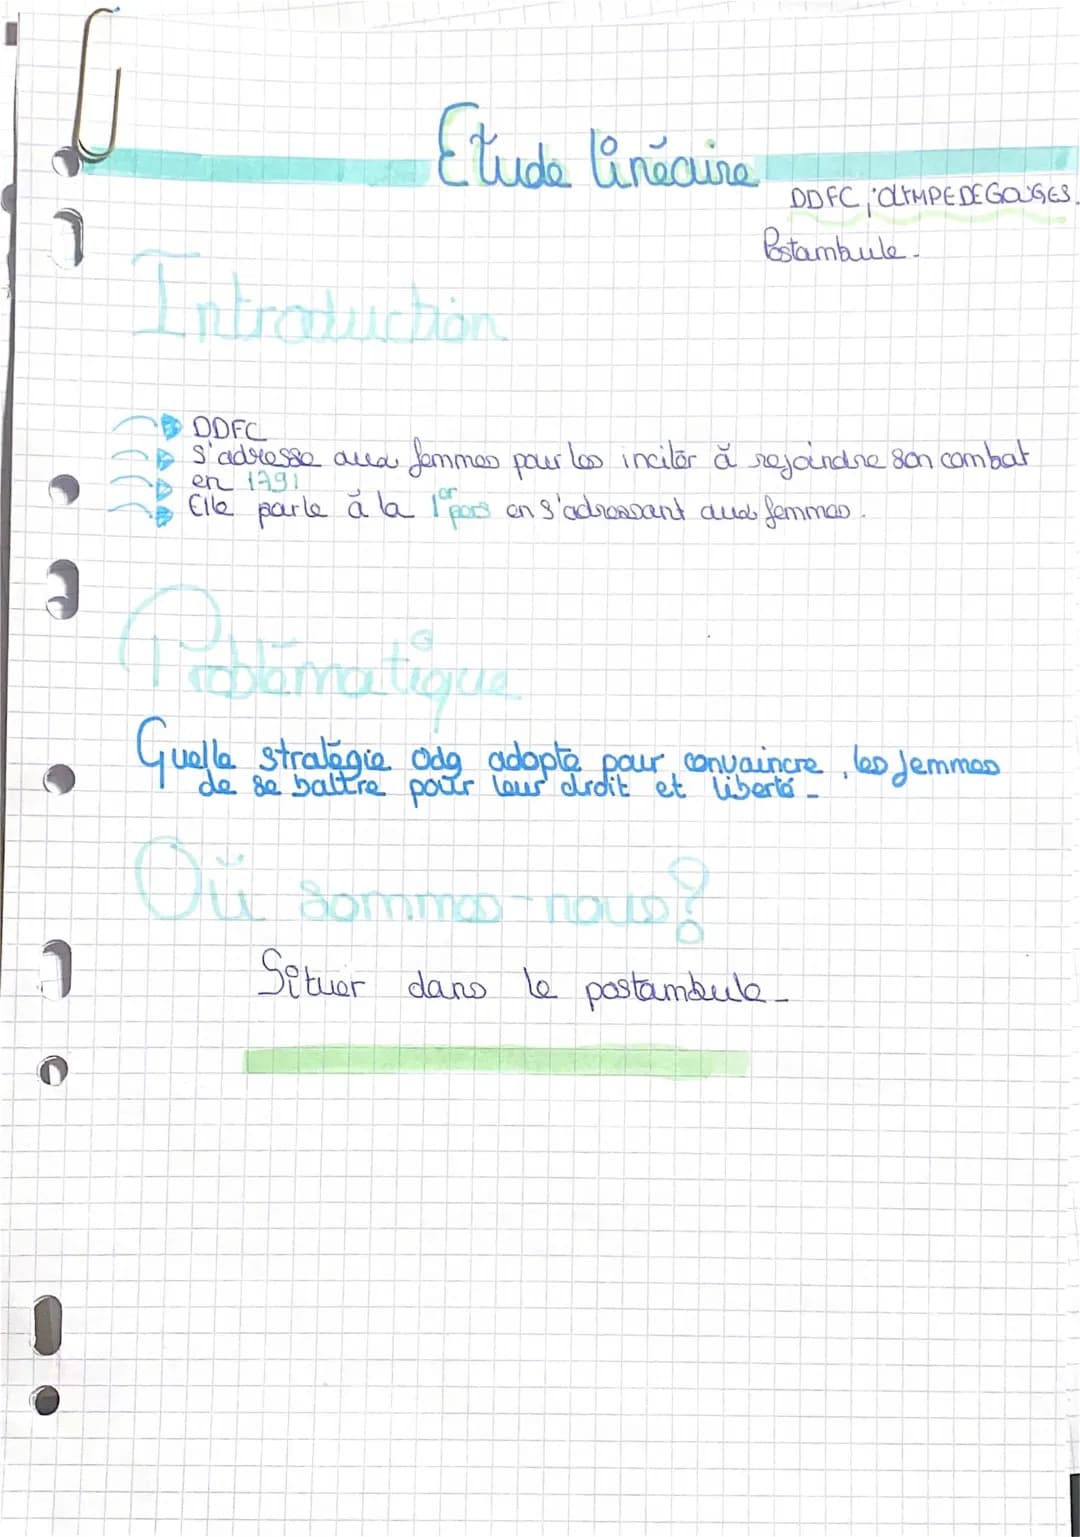 Etude linéaire
DDFC ; OLYMPE DE GOUGES.
Postambule.
Introduction
DDFC
S'adresse aux femmes pour les inciter à rejoindre son combat
en 1791
Elle parle à la 1er pers en s'adressant aux femmes.
Problématique
Quelle stratégie odg adopte pour convaincre, les femmes
de se battre pour leur droit et liberté.
Où sommes-nous?
Situer dans le postambule.